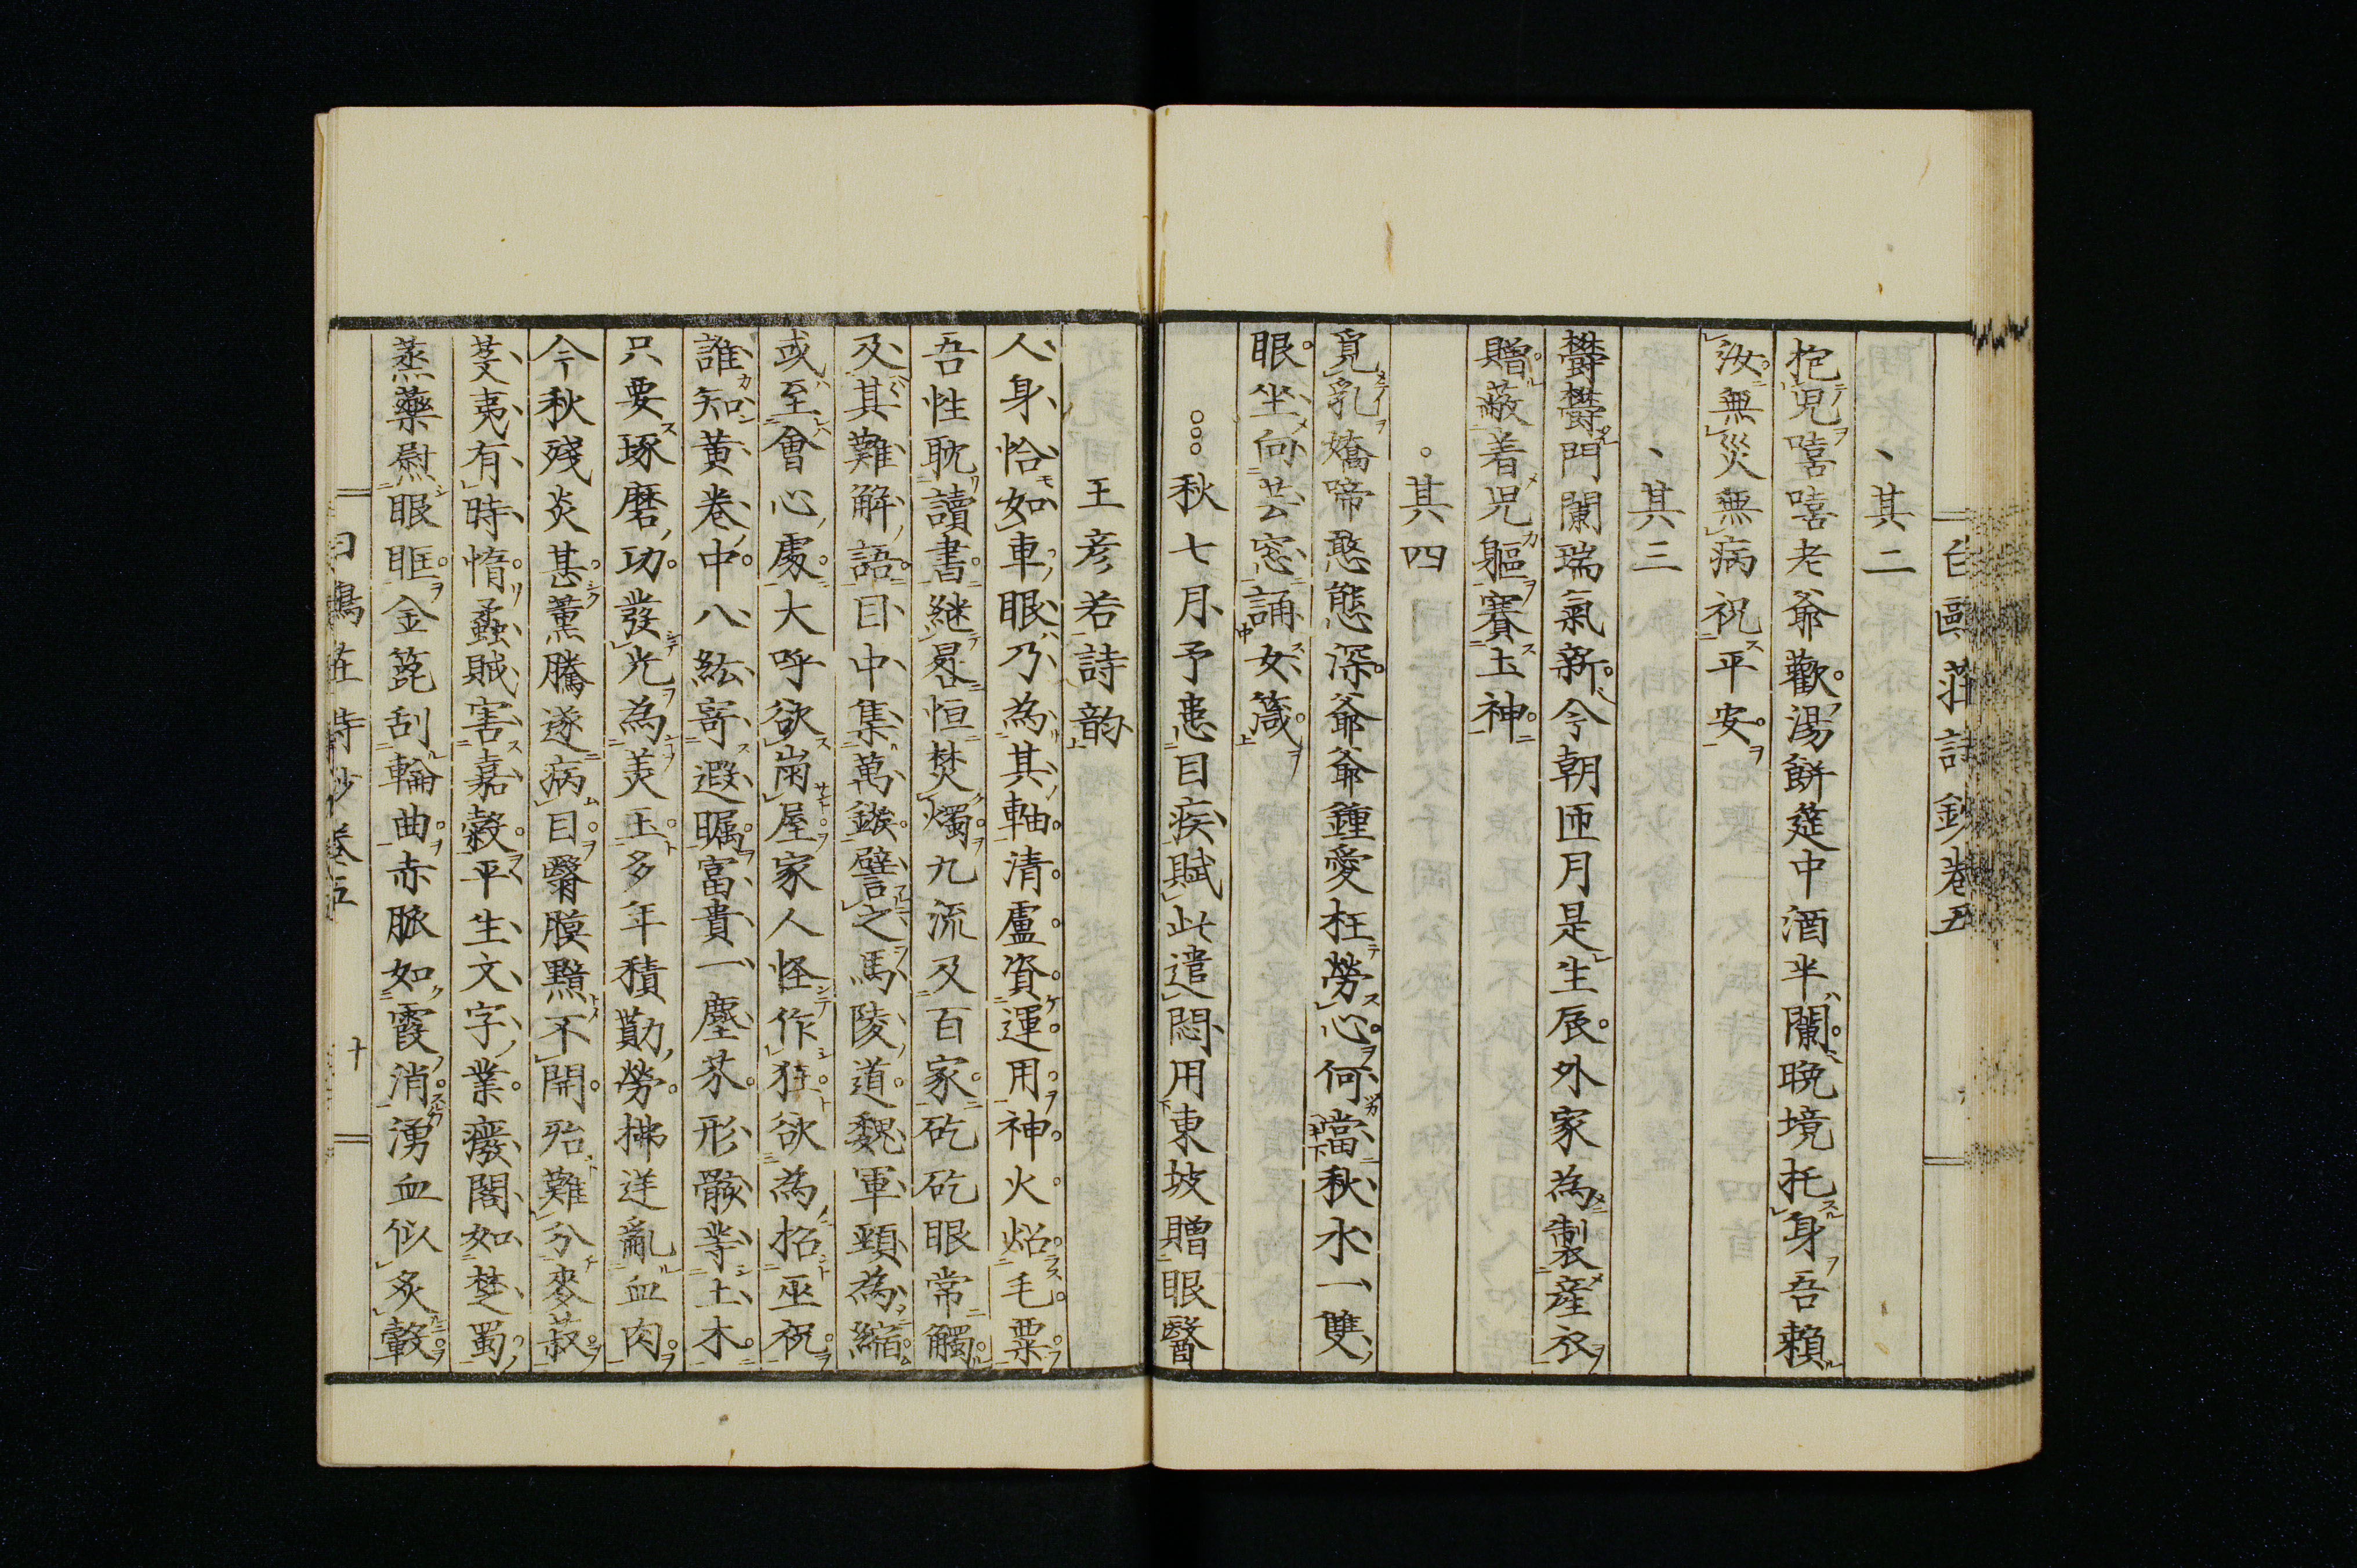 白鷗莊詩鈔卷五
其二
抱兒嘻嘻老爺歡湯餅筵中酒半闌晩境托身吾賴
汝無災無病祝平安
其三
欝欝門闌瑞氣新今朝匝月是生辰外家為製產衣
贈蔽着兒軀賽土神
其四
覓乳嬌啼憨態深爺爺鍾愛枉勞心何當秋水一雙
眼坐向芸窓誦女箴
秋七月予患目疾賦此遣悶用東坡贈眼醫
王彥若詩韵
人身恰如車眼乃為其軸清盧資運用神火焰毛粟
吾性耽讀書継晷恒焚燭九流及百家矻矻眼常觸
及其難解語目中集萬鏃譬之馬陵道魏軍頸為縮
或至會心處大呼欲崗屋家人怪作狂欲為招巫祝
誰知黃卷中八紘寄遐矚富貴一塵芥形骸等土木
只要琢磨功發光為美玉多年積勤勞拂逆亂血肉
今秋殘炎甚薰騰遂病目翳膜黯不開殆難分麥菽
芟夷有時惰蟊賊害嘉穀平生文字業癈閣如楚蜀
蒸藥慰眼眶金箆刮輪曲赤脈如霞消湧血似炙轂
十